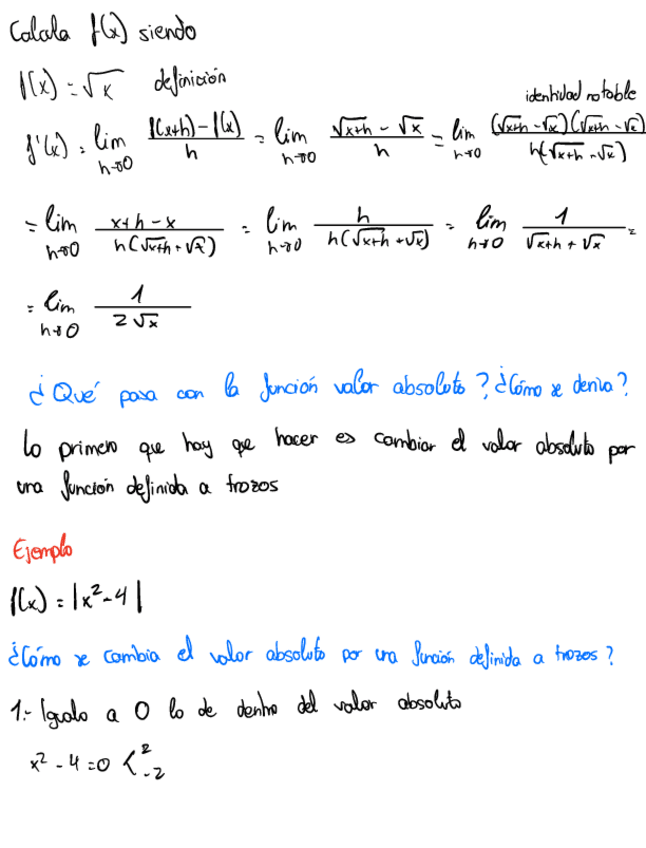 Calcula f(x) siendo
f(x) = √x definición
identidad notable
f'(x) = lim h→0 f(x+h) - f(x) / h = lim h→0 √x+h - √x / h = lim h→0 (√x+h - √x)(√x+h - √x) / h(√x+h - √x)
= lim h→0 x+h-x / h(√x+h + √x) = lim h→0 h / h(√x+h + √x) = lim h→0 1 / √x+h + √x =
= lim h→0 1 / 2√x
¿Qué pasa con la función valor absoluto? ¿Cómo se deriva?
Lo primero que hay que hacer es cambiar el valor absoluto por
una función definida a trozos
Ejemplo
f(x) = |x²-4|
¿Cómo se cambia el valor absoluto por una función definida a trozos?
1.- Igualo a 0 lo de dentro del valor absoluto
x² - 4 = 0 < 2 -2